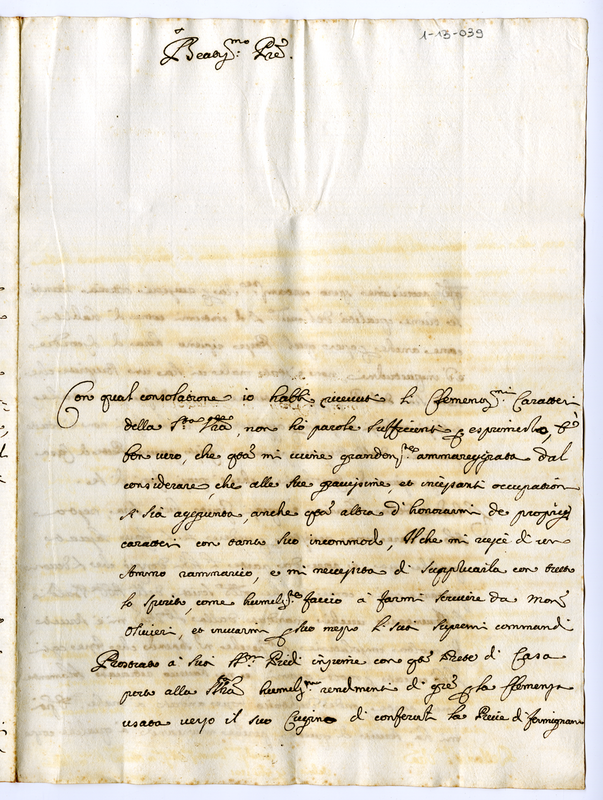 1-13-039
Beatiss.mo Pre.
Con qual consolatione io habbi ricevuti li Clementiss.mi Caratteri
della S.ta V.ra, non hò parole sufficienti p esprimerlo, è
ben vero, che q.sta mi viene grandem.te ammareggiata dal
considerare, che alle sue gravissime, et incessanti occupationi
si sia aggiunta, anche q.sta altra d'honorarmi de proprij
caratteri con tanto suo incommodo, Il che mi riesce di un
sommo rammarico, e mi necessita di supplicarla con tutto
lo spirito, come humiliss.te faccio à farmi scrivere da Mon.r
Olivieri, et inviarmi p suo mezzo li suoi supremi commandi
Prostrato a suoi S.mi Piedi insieme con q.sto Prete di Casa
porto alla S.tà V.ra humiliss.mi rendimenti di gre p la Clemenza
usata verso il suo Cugino di conferirli la Pieve di fermignano